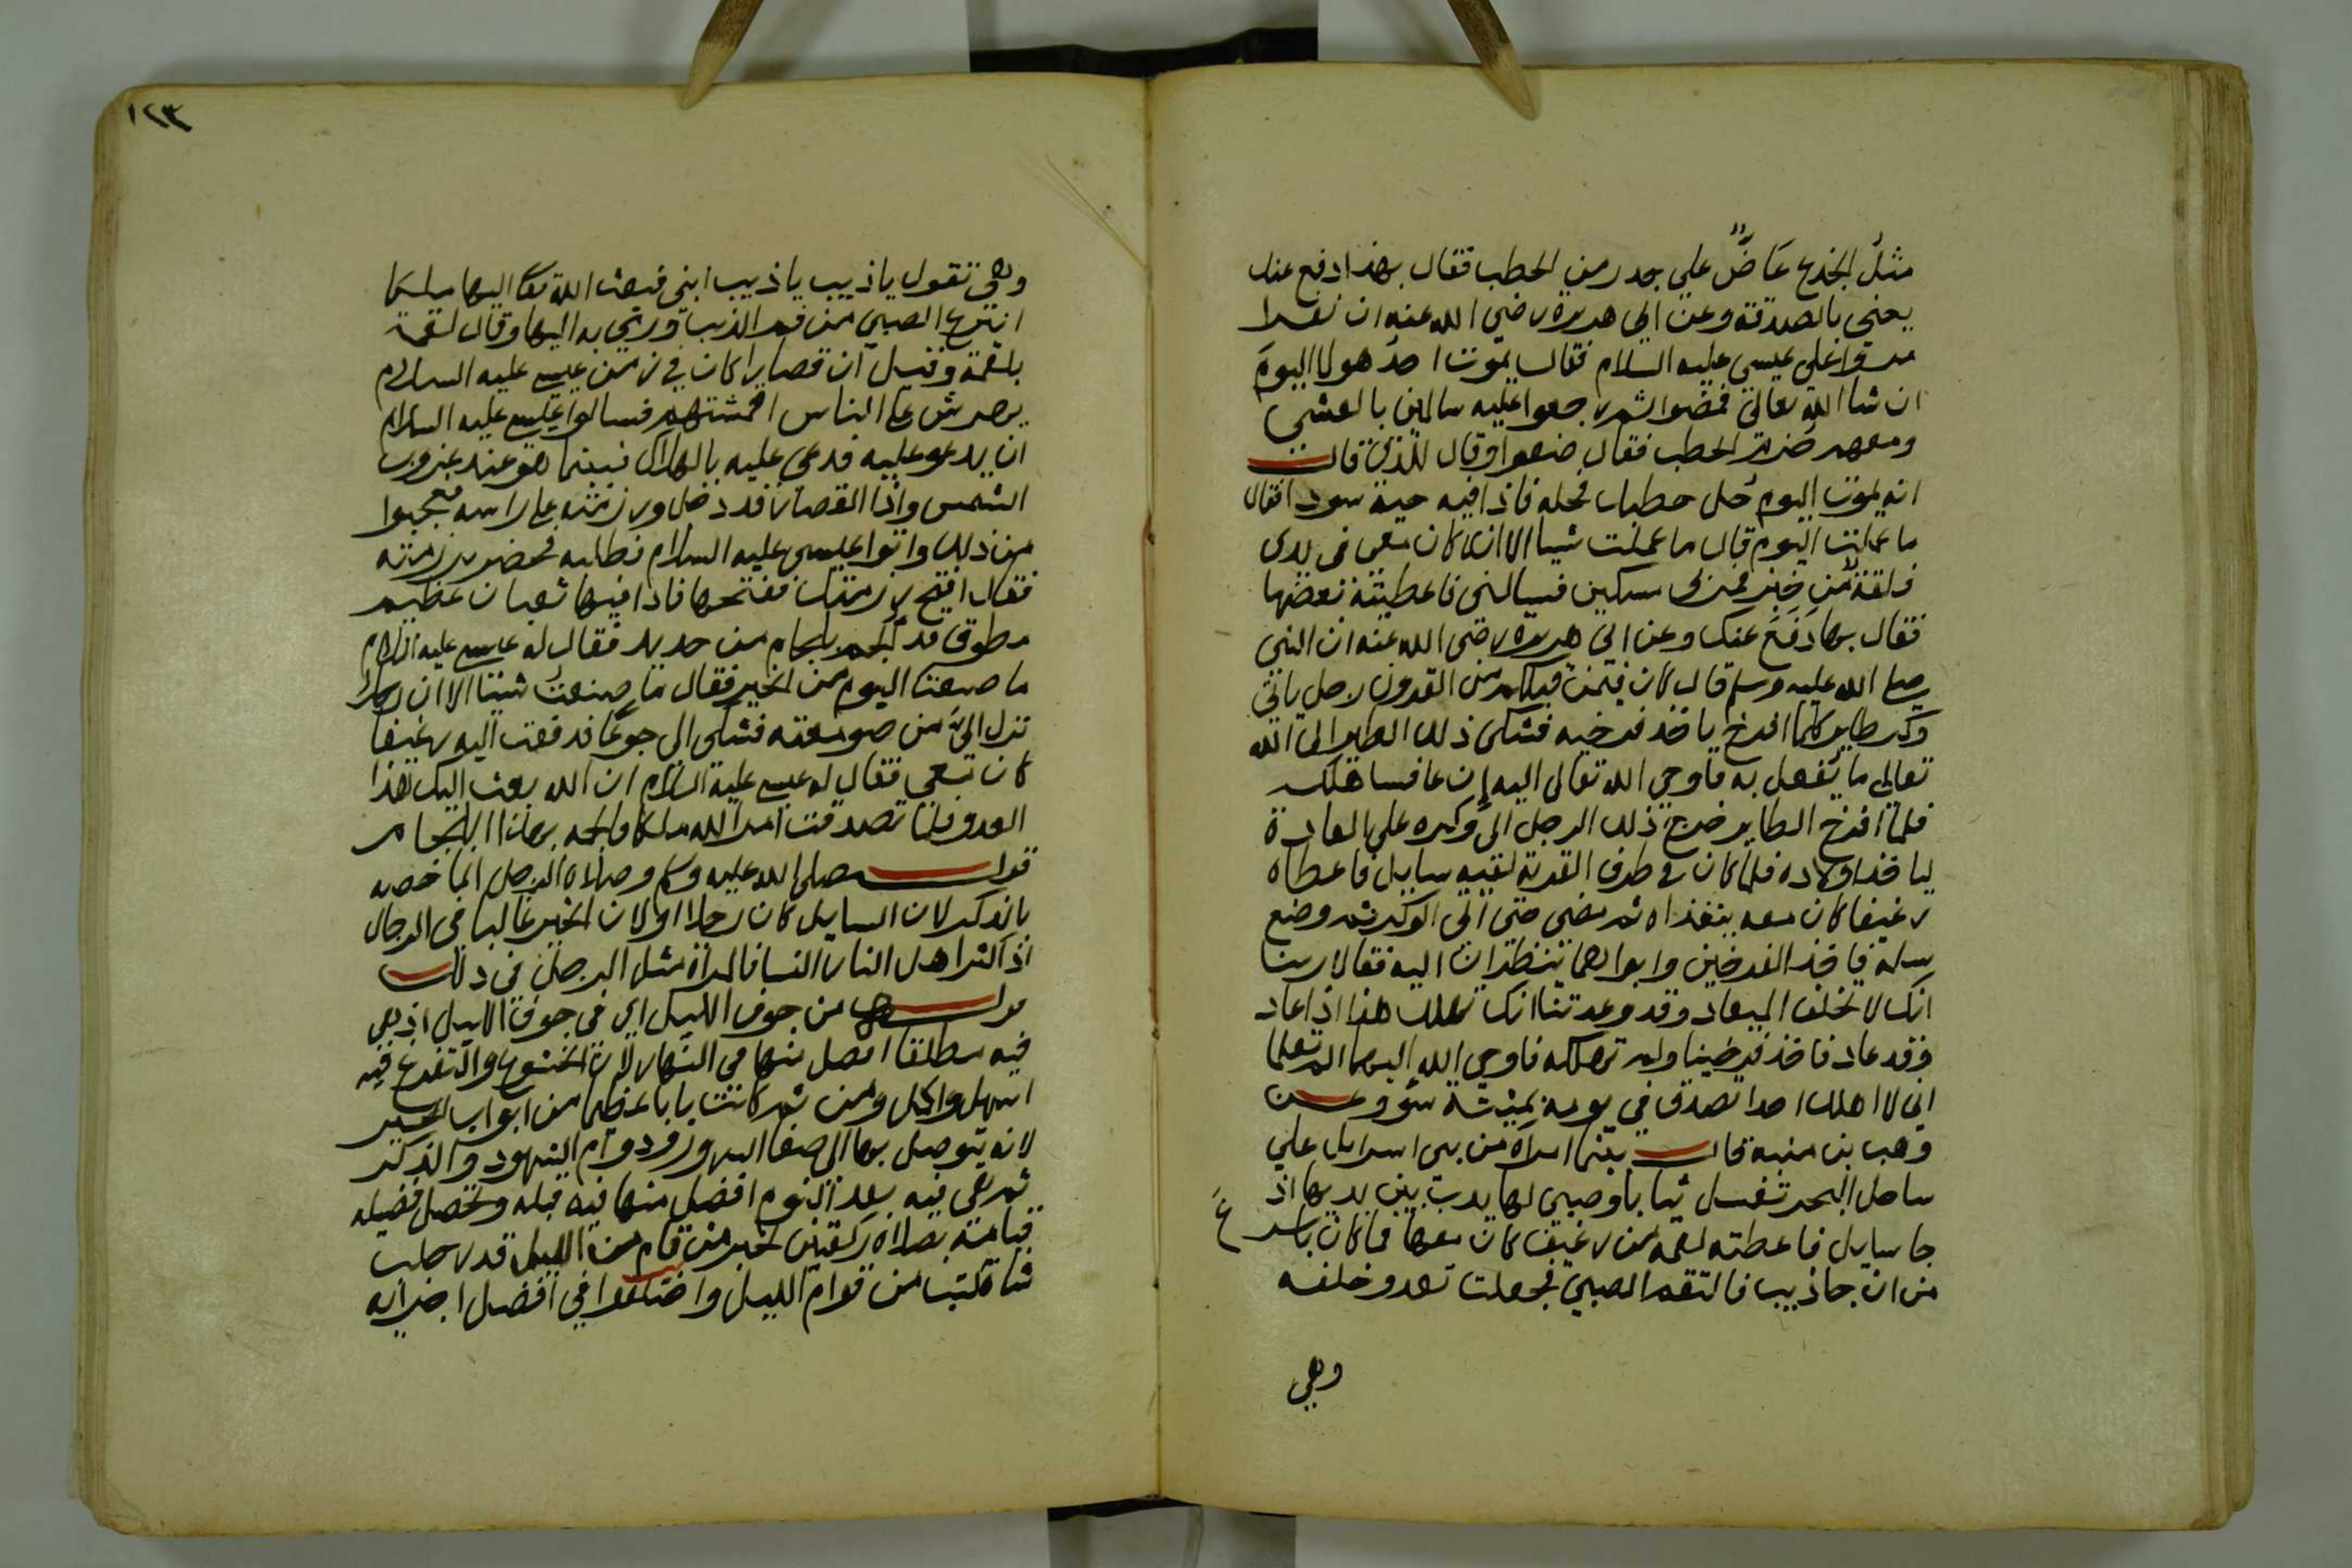 مثل الجذع عاضٌّ على جدر من الحطب فقال بهذا دفع عنك
يعني بالصدقة وعن ابي هريرة رضي الله عنه ان نفرا
مروا على عيسى عليه السلام فقال يموت احد هولا اليوم
ان شا الله تعالى فمضوا ثم رجعوا عليه سالمين بالعشي
ومعهم حزم الحطب فقال ضعوا وقال للذي قال
انه يموت اليوم حل حطبك فحله فاذا فيه حية سودا فقال
ما عملت اليوم قال ما عملت شيا الا انه كان معي في يدي
فلقة من خبز فمر بى مسكين فسالني فاعطيته بعضها
فقال بها دفع عنك وعن ابي هريرة رضي الله عنه ان النبي
صلى الله عليه وسلم قال كان فيمن قبلكم من القرون رجل ياتي
وكر طاير كلما افرخ ياخذ فرخيه فشكى ذلك الطاير الى الله
تعالى ما يفعل به فاوحى الله تعالى اليه إن عاد فساهلكه
فلما افرخ الطاير خرج ذلك الرجل الى وكره على العادة
لياخذ اولاده فلما كان في طرف القرية لقيه سايل فاعطاه
رغيفا كان معه يتغذاه ثم مضى حتى اتى الوكر ثم وضع
سلمه فاخذ الفرخين وابواهما ينظران اليه فقالا ربنا
انك لا تخلف الميعاد وقد وعدتنا انك تهلك هذا اذا عاد
وقد عاد فاخذ فرخينا ولم تهلكه فاوحى الله اليهما الم تعلما
اني لا اهلك احدا تصدق في يومه بميتة سوء وعن
وهب بن منبه قال بينما امراة من بني اسرايل على
ساحل البحر تغسل ثيابا وصبي لها يدب بين يديها اذ
جا سايل فاعطته لقمة من رغيف كان معها فما كان باسرع
من ان جا ذيب فالتقم الصبي فجعلت تعدو خلفه
وهي
١٢٣
وهي تقول يا ذيب يا ذيب ابني فبعث الله تعا اليها ملكا
انتزع الصبي من فم الذيب ورمي به اليها وقال لقمة
بلقمة وقيل ان قصارا كان في زمن عيسى عليه السلام
يحرش على الناس اقمشتهم فسالوا عيسى عليه السلام
ان يدعو عليه فدعى عليه بالهلاك فبينما هو عند غروب
الشمس واذا القصار قد دخل ورزمته على راسه فتعجبوا
من ذلك واتوا عيسى عليه السلام فطلبه فحضر برزمته
فقال افتح رزمتك ففتحها فاذا فيها ثعبان عظيم
مطوق قد الجم بلجام من حديد فقال له عيسى عليه السلام
ما صنعت اليوم من الخير فقال ما صنعت شيئا الا ان رجلا
نزل اليّ من صومعته فشكى الي جوعا فدفعت اليه رغيفا
كان معي فقال له عيسى عليه السلام ان الله بعث اليك هذا
العدو فلما تصدقت امر الله ملكا فالجمه بهذا اللجام
قوله صلى الله عليه وسلم وصلاة الرجل انما خصه
بالذكر لان السايل كان رجلا او لان الخير غالبا في الرجال
اذ اكثر اهل النار النسا فالمراة مثل الرجل في ذلك
قوله من جوف الليل اي في جوف الليل اذ هي
فيه مطلقا افضل منها في النهار لان الخشوع والتضرع فيه
اسهل واكمل ومن ثم كانت بابا عظيما من ابواب الخير
لانه يتوصل بها الى صفا السر ودوام الشهود والذكر
ثم هي فيه بعد النوم افضل منها فيه قبله وتحصل فضيلة
قيامه بصلاة ركعتين لخبر من قام من الليل قدر حلب
شاة كتب من قوام الليل واختلفوا في افضل اجزائه